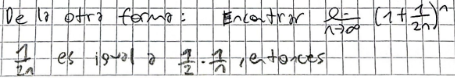 De la otra forma: Encontrar lim n→∞ (1+1/2n)^n
1/2n es igual a 1/2 · 1/n, entonces